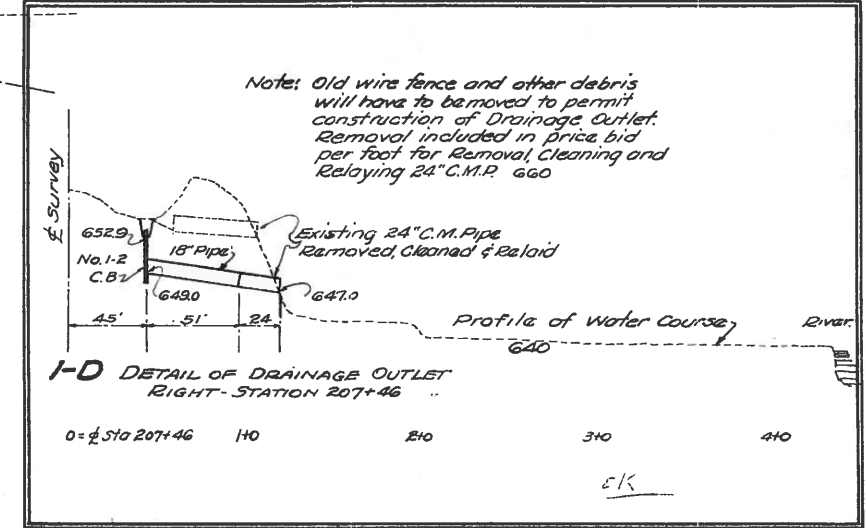 Note: Old wire fence and other debris
will have to be moved to permit
construction of Drainage Outlet.
Removal included in price bid
per foot for Removal, Cleaning and
Relaying 24" C.M.P. 660
℄ Survey
652.9
No. 1-2
C.B.
18" Pipe
Existing 24" C.M. Pipe
Removed, Cleaned & Relaid
649.0
647.0
45'
51'
24
Profile of Water Course
River.
640
1-D DETAIL OF DRAINAGE OUTLET
RIGHT - STATION 207+46
0 = ℄ Sta 207+46
1+0
2+0
3+0
4+0